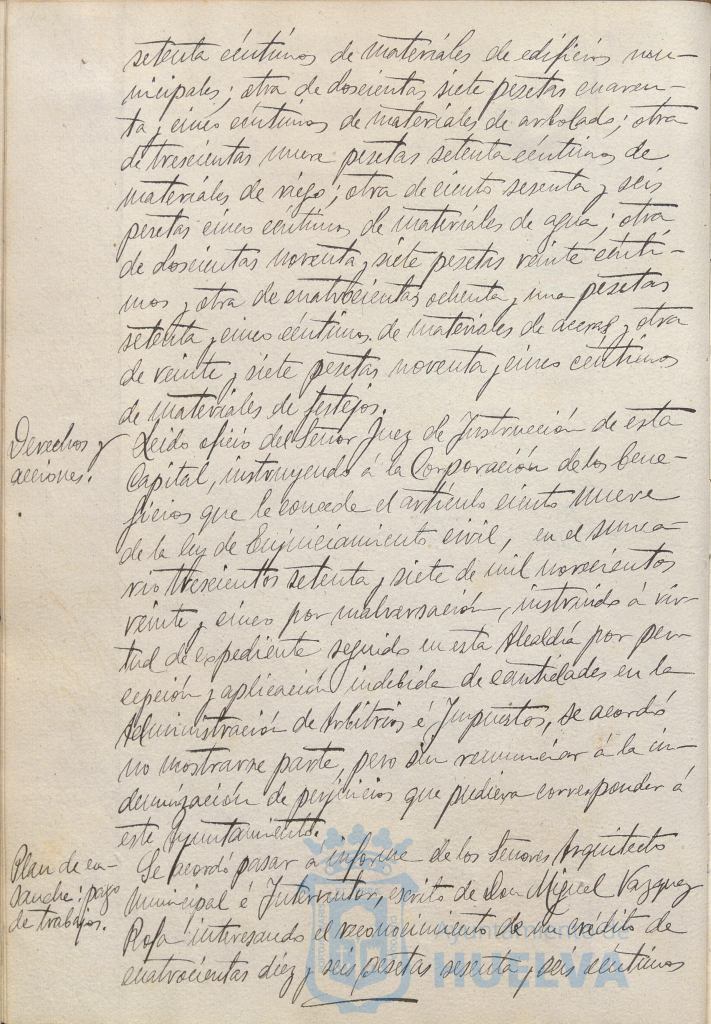 setenta céntimos de materiales de edificios mu-
nicipales; otra de doscientas siete pesetas cuaren-
ta y cinco céntimos de materiales de arbolado; otra
de trescientas nueve pesetas setenta céntimos de
materiales de riego; otra de ciento sesenta y seis
pesetas cinco céntimos de materiales de agua; otra
de doscientas noventa y siete pesetas veinte cénti-
mos y otra de cuatrocientas ochenta y una pesetas
setenta y cinco céntimos de materiales de aceras y otra
de veinte y siete pesetas noventa y cinco céntimos
de materiales de festejos.
Derechos y
acciones.
Leido oficio del Señor Juez de Instrucción de esta
Capital, instruyendo á la Corporación de los bene-
ficios que le concede el artículo ciento nueve
de la ley de Enjuiciamiento civil, en el suma-
rio trescientos setenta y siete de mil novecientos
veinte y cinco por malversación, instruido á vir-
tud de expediente seguido en esta Alcaldía por per-
cepción y aplicación indebida de cantidades en la
Administración de Arbitrios é Impuestos, se acordó
no mostrarse parte, pero sin renunciar á la in-
demnización de perjuicios que pudiera corresponder á
este Ayuntamiento.
Plan de en-
sanche: pago
de trabajos.
Se acordó pasar a informe de los Señores Arquitecto
Municipal é Interventor, escrito de Don Miguel Vazquez
Rofa interesando el reconocimiento de un crédito de
cuatrocientas diez y seis pesetas sesenta y seis céntimos
Ayuntamiento de
HUELVA